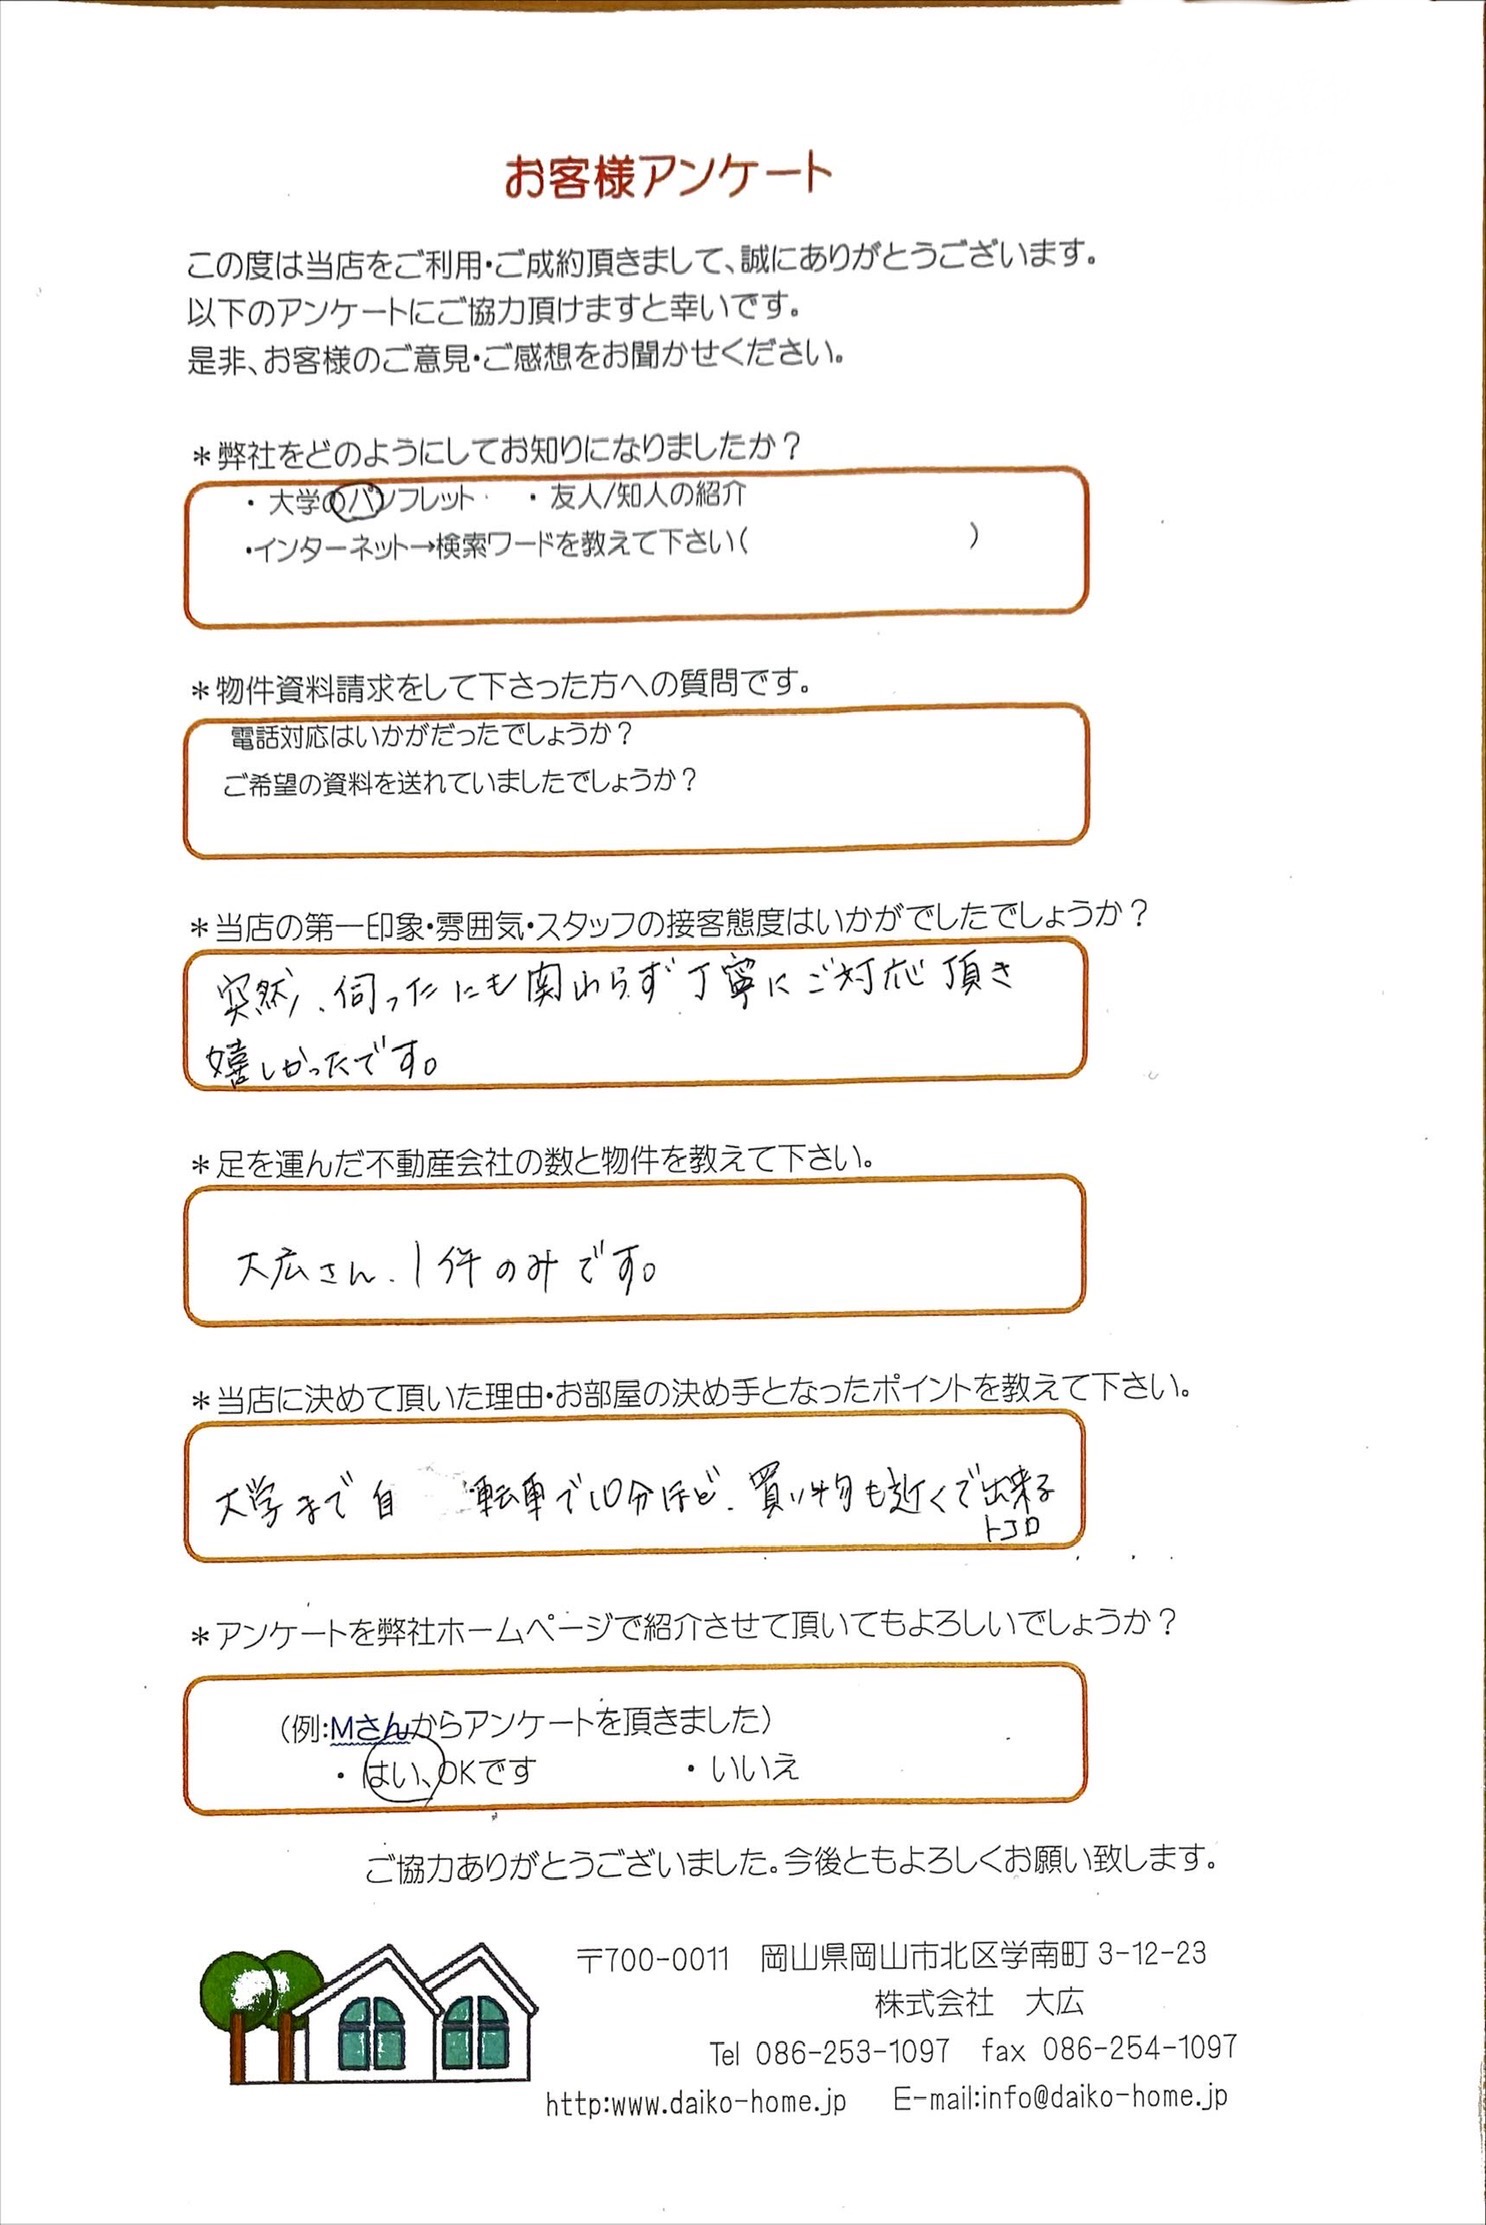 お客様アンケート
この度は当店をご利用・ご成約頂きまして、誠にありがとうございます。
以下のアンケートにご協力頂けますと幸いです。
是非、お客様のご意見・ご感想をお聞かせください。
＊弊社をどのようにしてお知りになりましたか？
・大学のパンフレット ・友人/知人の紹介
・インターネット→検索ワードを教えて下さい（ ）
＊物件資料請求をして下さった方への質問です。
電話対応はいかがだったでしょうか？
ご希望の資料を送れていましたでしょうか？
＊当店の第一印象・雰囲気・スタッフの接客態度はいかがでしたでしょうか？
突然、伺ったにも関わらず丁寧にご対応頂き
嬉しかったです。
＊足を運んだ不動産会社の数と物件を教えて下さい。
大広さん、1件のみです。
＊当店に決めて頂いた理由・お部屋の決め手となったポイントを教えて下さい。
大学まで自転車で10分ほど、買い物も近くで出来る
トコロ
＊アンケートを弊社ホームページで紹介させて頂いてもよろしいでしょうか？
（例：Mさんからアンケートを頂きました）
・はい、OKです ・いいえ
ご協力ありがとうございました。今後ともよろしくお願い致します。
〒700-0011 岡山県岡山市北区学南町3-12-23
株式会社 大広
Tel 086-253-1097 fax 086-254-1097
http:www.daiko-home.jp E-mail:info@daiko-home.jp